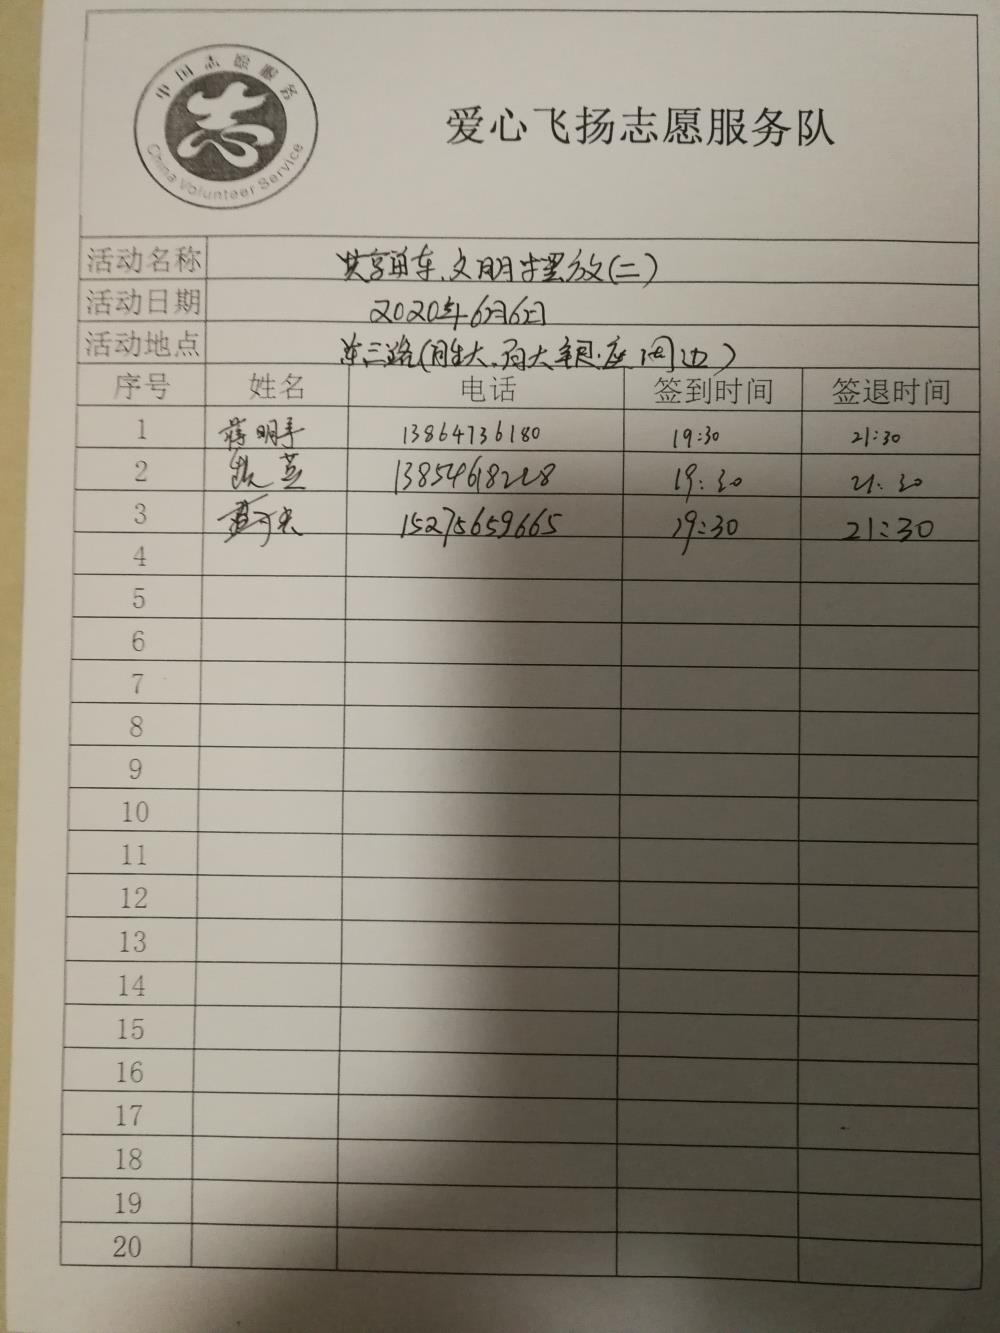 中国志愿服务
China Volunteer Service
爱心飞扬志愿服务队
活动名称 共享单车、文明摆放(二)
活动日期 2020年6月6日
活动地点 东三路(胜大、周边)
序号 姓名 电话 签到时间 签退时间
1 蒋明 13864736180 19:30 21:30
2 芝 13854618228 19:30 21:30
3 15275659665 19:30 21:30
4
5
6
7
8
9
10
11
12
13
14
15
16
17
18
19
20